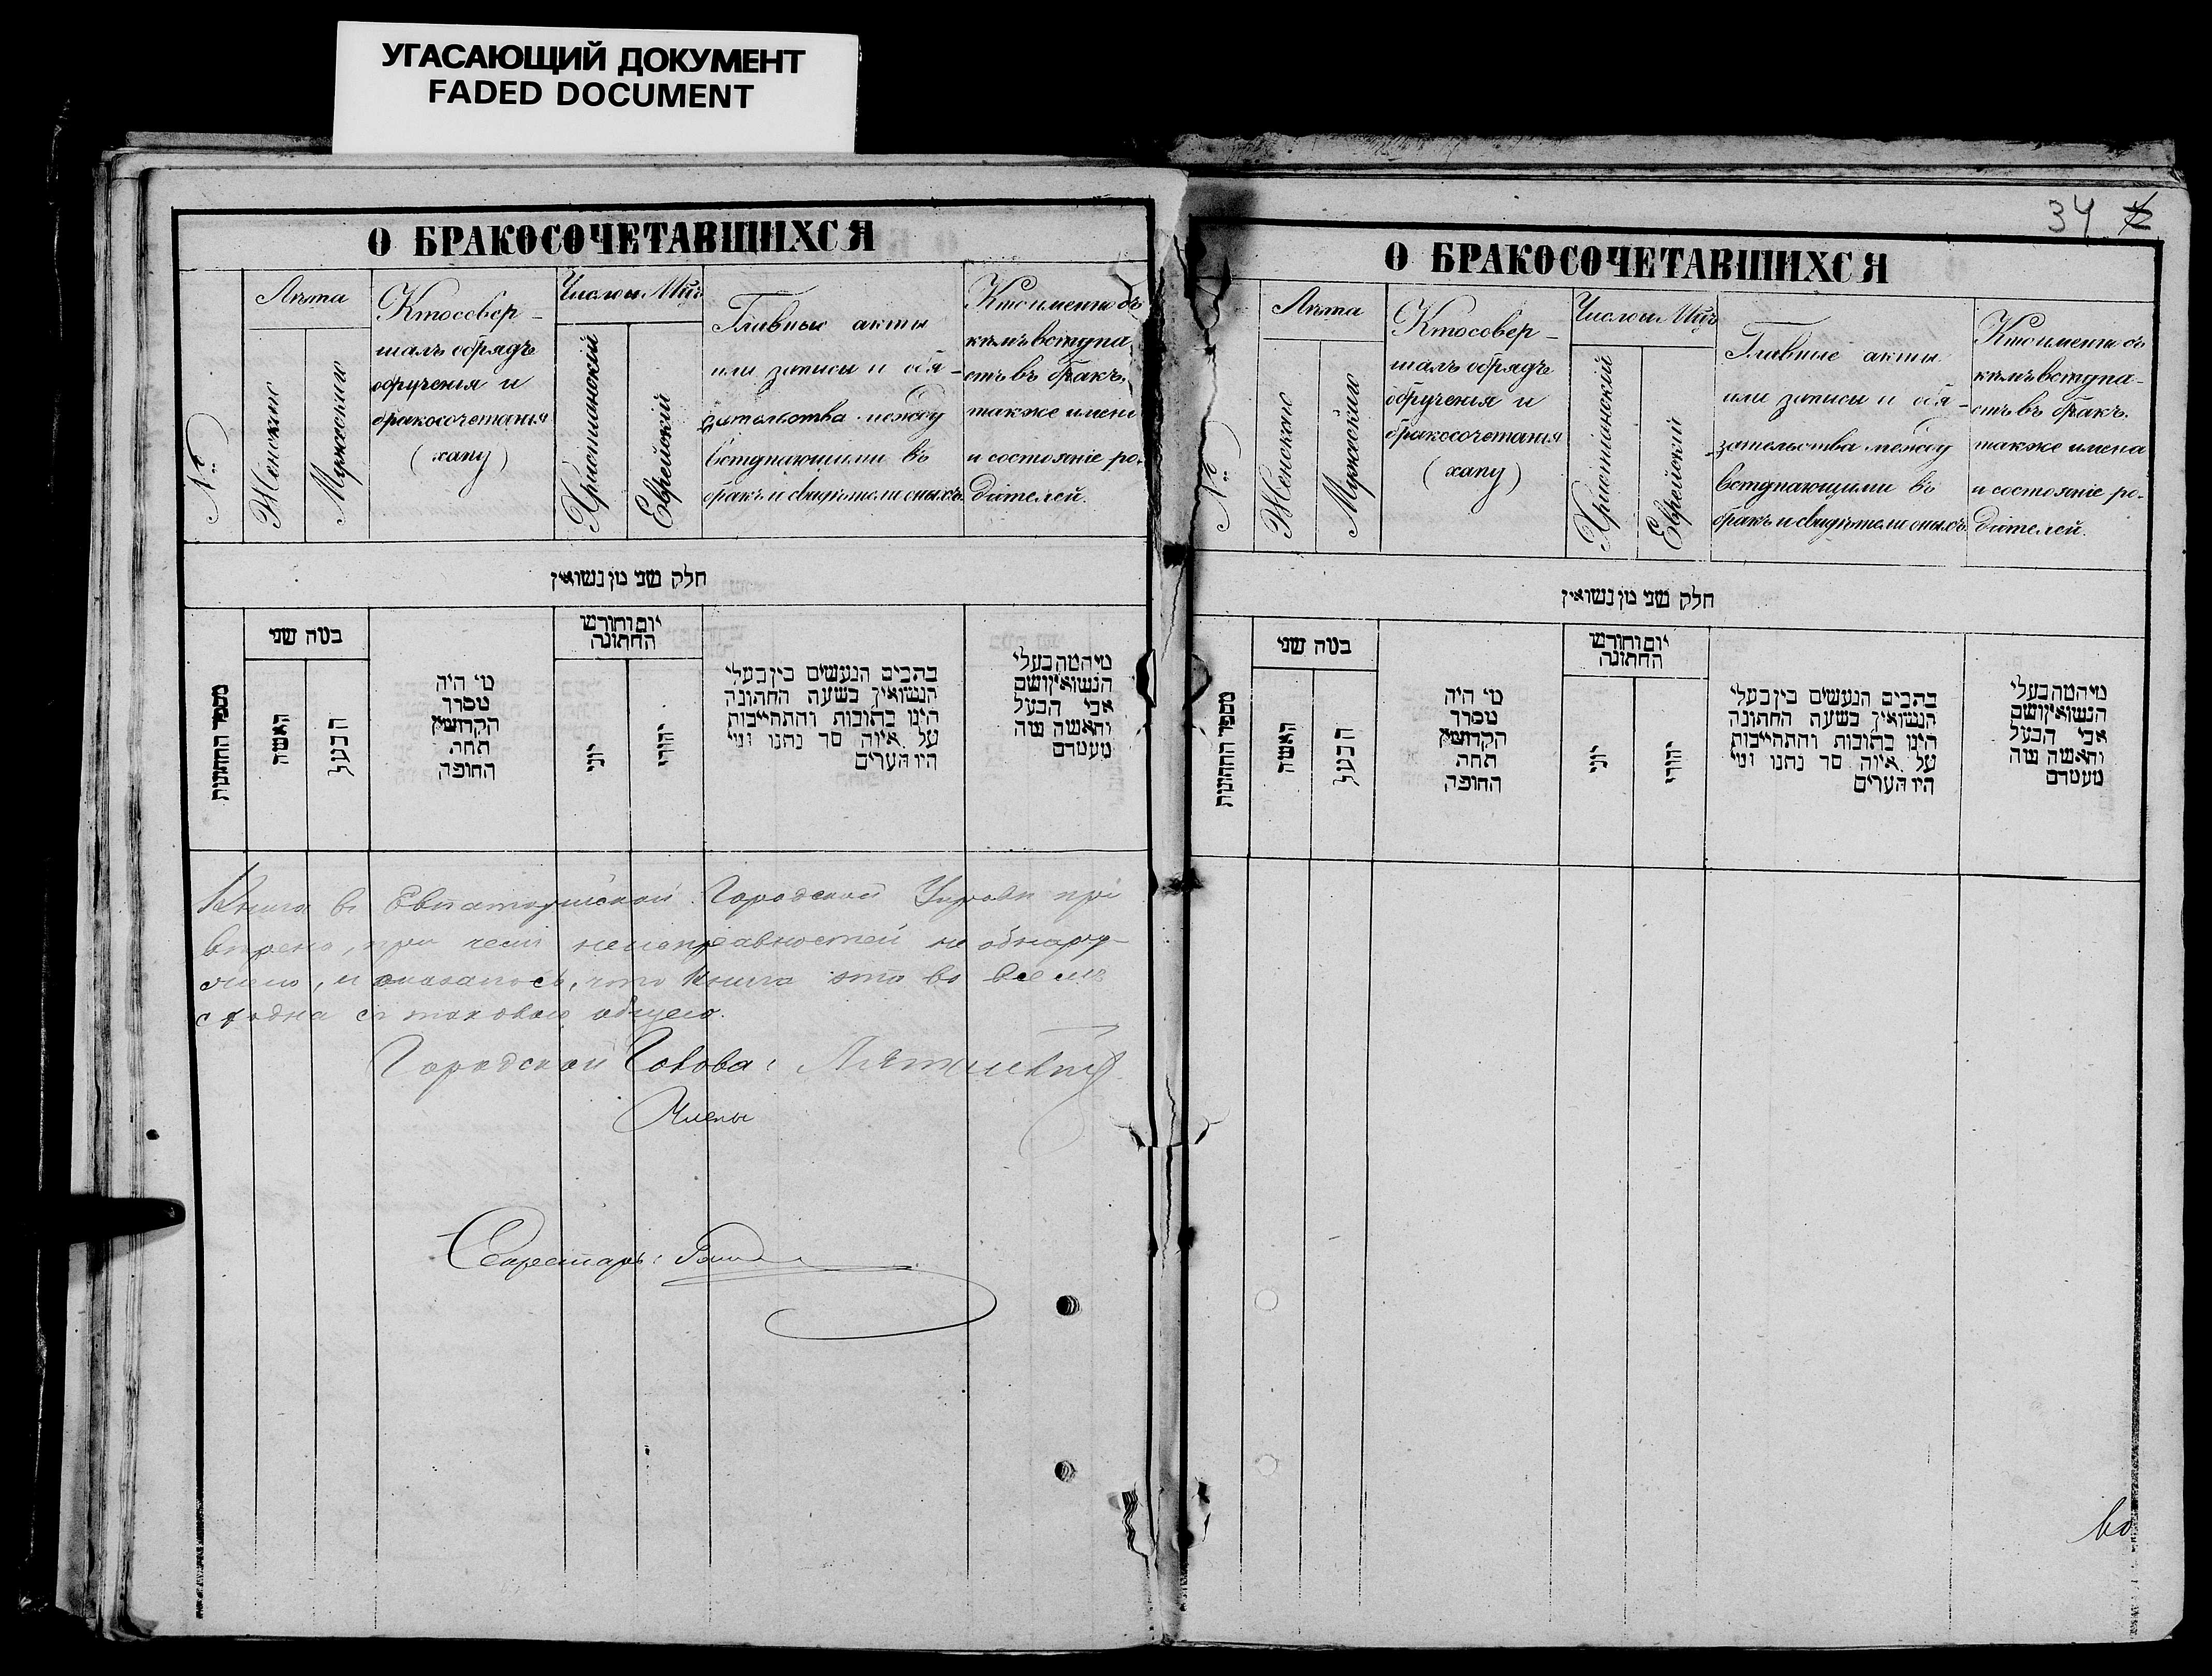 УГАСАЮЩИЙ ДОКУМЕНТ
FADED DOCUMENT
О БРАКОСОЧЕТАВШИХСЯ
№
Лѣта
Женскіе
Мужескіе
Кто совер-
шалъ обрядъ
обрученія и
бракосочетанія
(хапу)
Число и Мцъ
Христіанскій
Еврейскій
Главные акты
или записи и обя-
зательства между
вступающими въ
бракъ и свидѣтели оныхъ
Кто именно съ
кѣмъ вступа-
етъ въ бракъ,
также имена
и состояніе ро-
дителей.
חלק שני מן נשואין
מספר החתונות
במה שני
האשה
הבעל
מי היה
מסדר
הקדושין
תחת
החופה
יום וחודש
החתונה
יוני
יהודי
בתבים הנעשים בין בעלי
הנשואין בשעת החתונה
הינו כתובות והתחייבות
על איזה סך נתנו ומי
היו העדים
מיהמה בעלי
הנשואין ושם
אבי הבעל
והאשה ומה
מעמדם
Книга въ Евпаторійской Городской Управѣ про
вѣрена, при чемъ неисправностей не обнару-
жено, и оказалось, что книга эта во всемъ
сходна съ таковою общею.
Городской Голова:
Члены
Секретарь:
34
О БРАКОСОЧЕТАВШИХСЯ
№
Лѣта
Женскіе
Мужескіе
Кто совер-
шалъ обрядъ
обрученія и
бракосочетанія
(хапу)
Число и Мцъ
Христіанскій
Еврейскій
Главные акты
или записи и обя-
зательства между
вступающими въ
бракъ и свидѣтели оныхъ
Кто именно съ
кѣмъ вступа-
етъ въ бракъ,
также имена
и состояніе ро-
дителей.
חלק שני מן נשואין
מספר החתונות
במה שני
האשה
הבעל
מי היה
מסדר
הקדושין
תחת
החופה
יום וחודש
החתונה
יוני
יהודי
בתבים הנעשים בין בעלי
הנשואין בשעת החתונה
הינו כתובות והתחייבות
על איזה סך נתנו ומי
היו העדים
מיהמה בעלי
הנשואין ושם
אבי הבעל
והאשה ומה
מעמדם
во